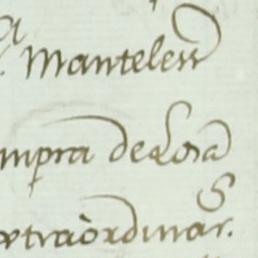 Manteless
mpra de Losa
xtraòrdinar.